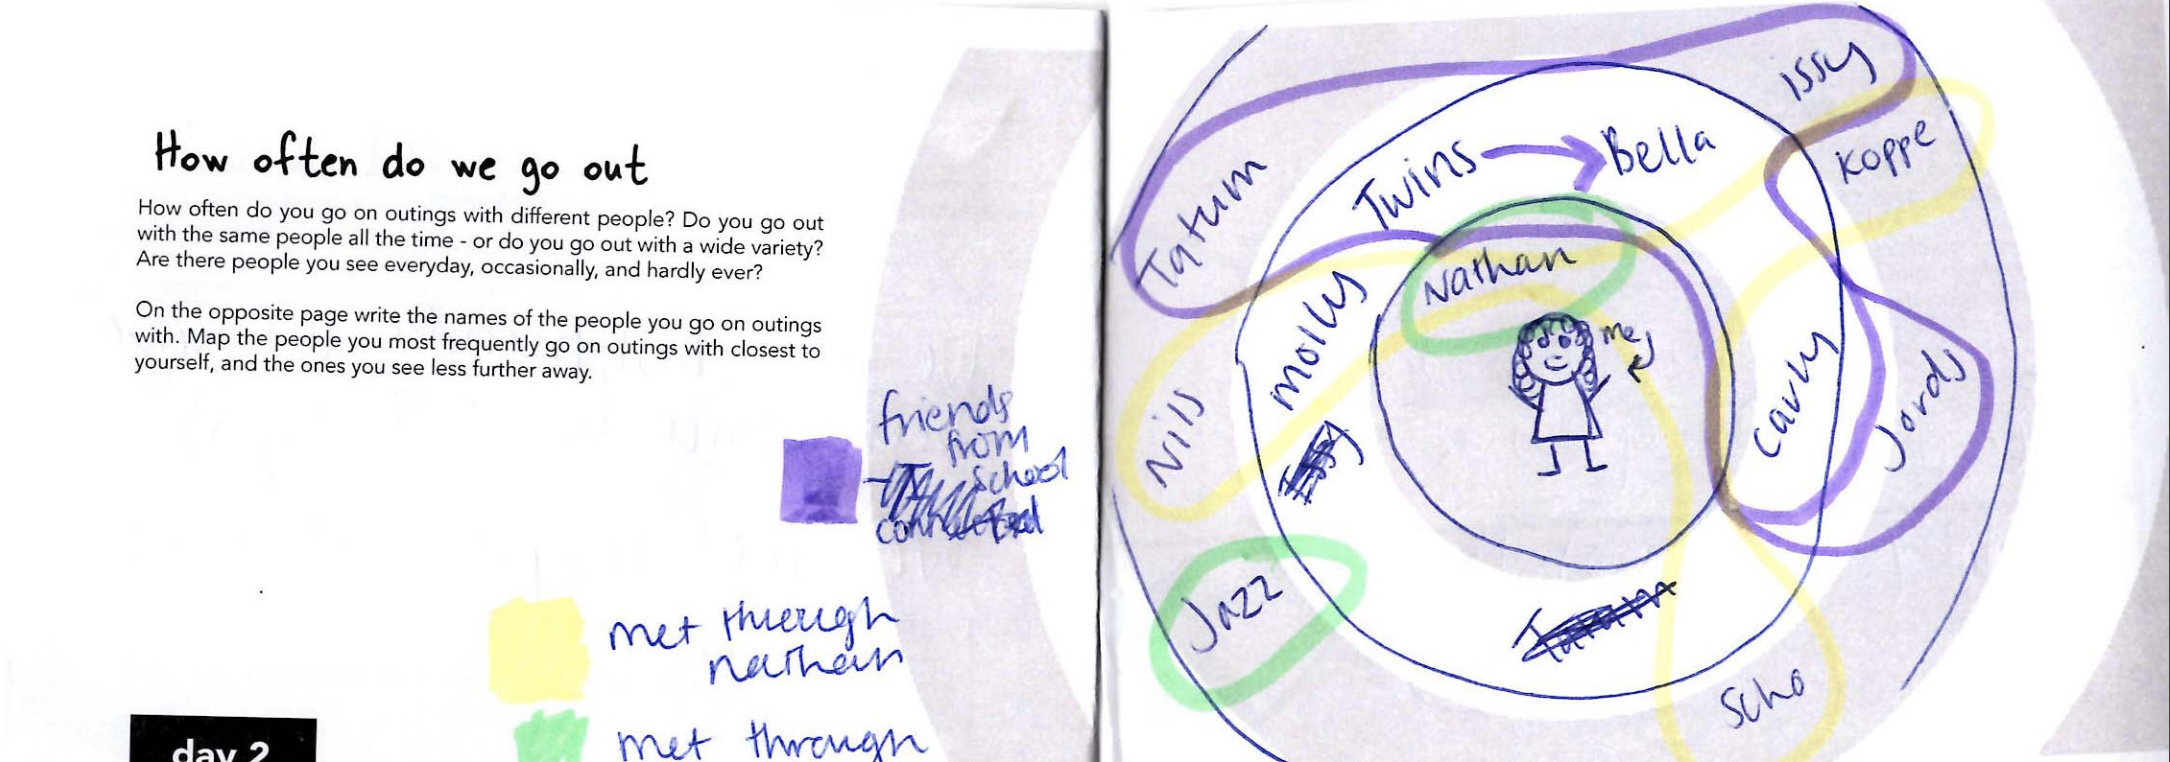 How often do we go out
How often do you go on outings with different people? Do you go out
with the same people all the time - or do you go out with a wide variety?
Are there people you see everyday, occasionally, and hardly ever?
On the opposite page write the names of the people you go on outings
with. Map the people you most frequently go on outings with closest to
yourself, and the ones you see less further away.
friends
from
school
met through
nathan
met through
day 2
Issy
Koppe
Twins
Bella
Tatum
Nathan
molly
me
Carly
Jords
Nils
Jazz
Scho